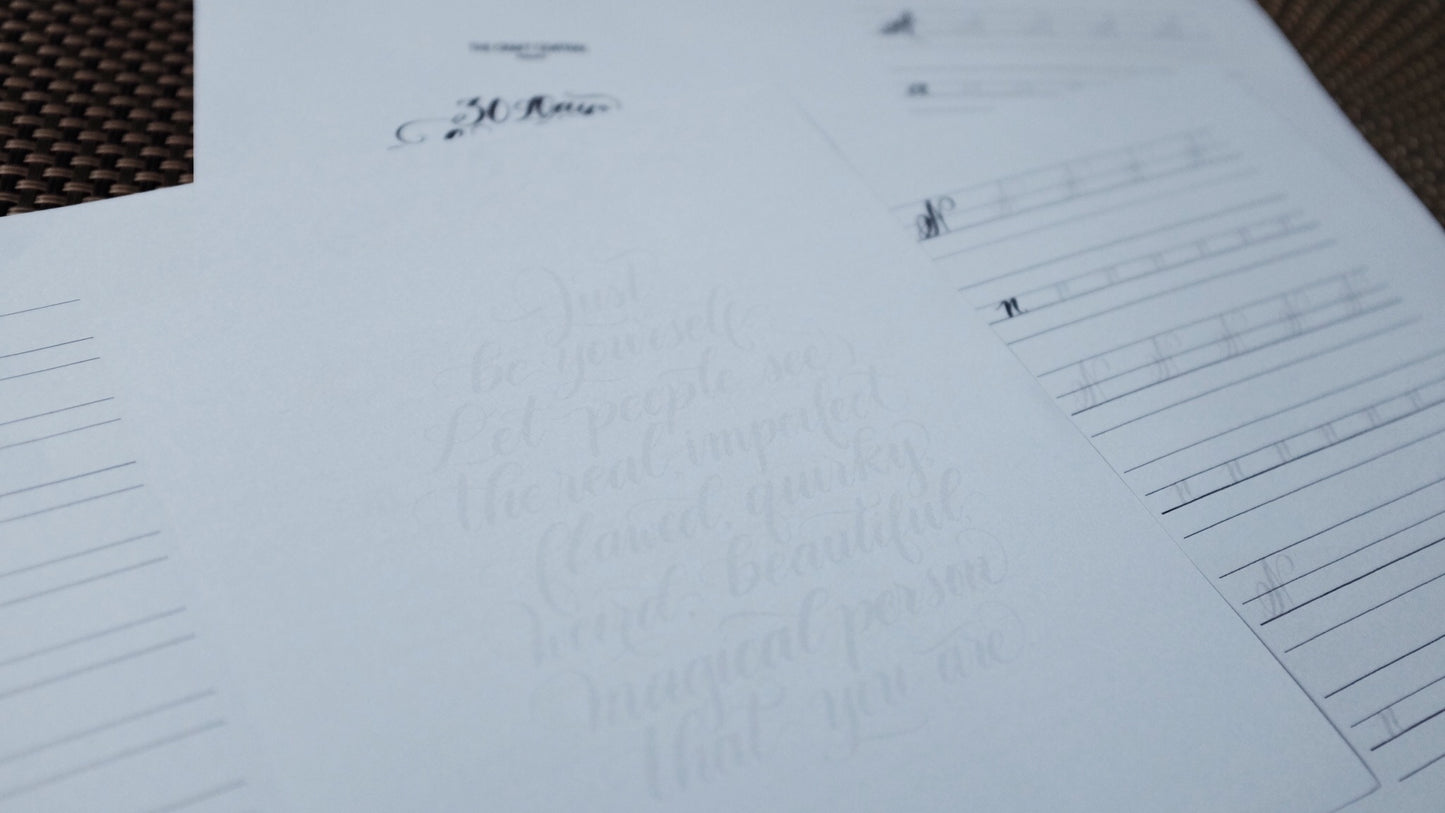 THE CRAFT CENTRAL
30 Days
Just
be yourself.
Let people see
the real, imperfect
flawed, quirky,
weird, beautiful
magical person
that you are.
a
N
n